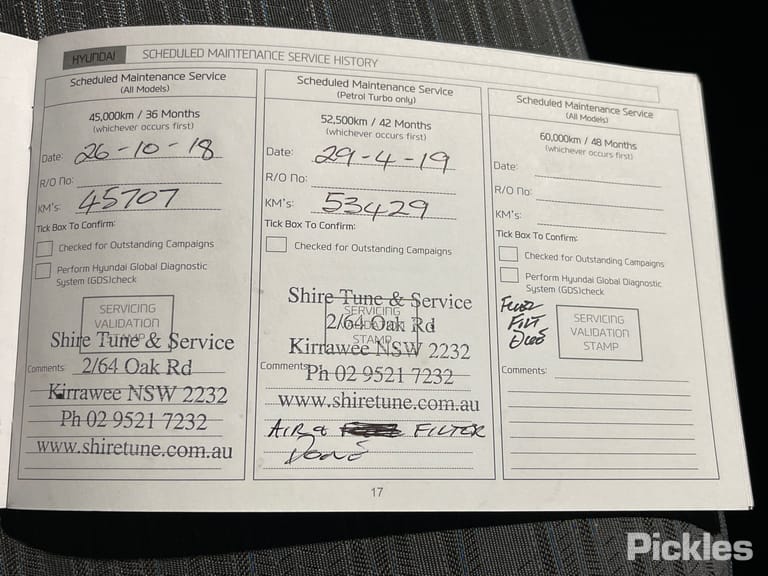 HYUNDAI SCHEDULED MAINTENANCE SERVICE HISTORY
Scheduled Maintenance Service
(All Models)
45,000km / 36 Months
(whichever occurs first)
Date: 26-10-18
R/O No:
KM's: 45707
Tick Box To Confirm:
Checked for Outstanding Campaigns
Perform Hyundai Global Diagnostic
System (GDS)check
SERVICING
VALIDATION
STAMP
Shire Tune & Service
2/64 Oak Rd
Kirrawee NSW 2232
Ph 02 9521 7232
www.shiretune.com.au
Comments:
Scheduled Maintenance Service
(Petrol Turbo only)
52,500km / 42 Months
(whichever occurs first)
Date: 29-4-19
R/O No:
KM's: 53429
Tick Box To Confirm:
Checked for Outstanding Campaigns
SERVICING
VALIDATION
STAMP
Shire Tune & Service
2/64 Oak Rd
Kirrawee NSW 2232
Ph 02 9521 7232
www.shiretune.com.au
Comments:
AIR & FILTER
Done
Scheduled Maintenance Service
(All Models)
60,000km / 48 Months
(whichever occurs first)
Date:
R/O No:
KM's:
Tick Box To Confirm:
Checked for Outstanding Campaigns
Perform Hyundai Global Diagnostic
System (GDS)check
FILT
SERVICING
VALIDATION
STAMP
Comments:
17
Pickles